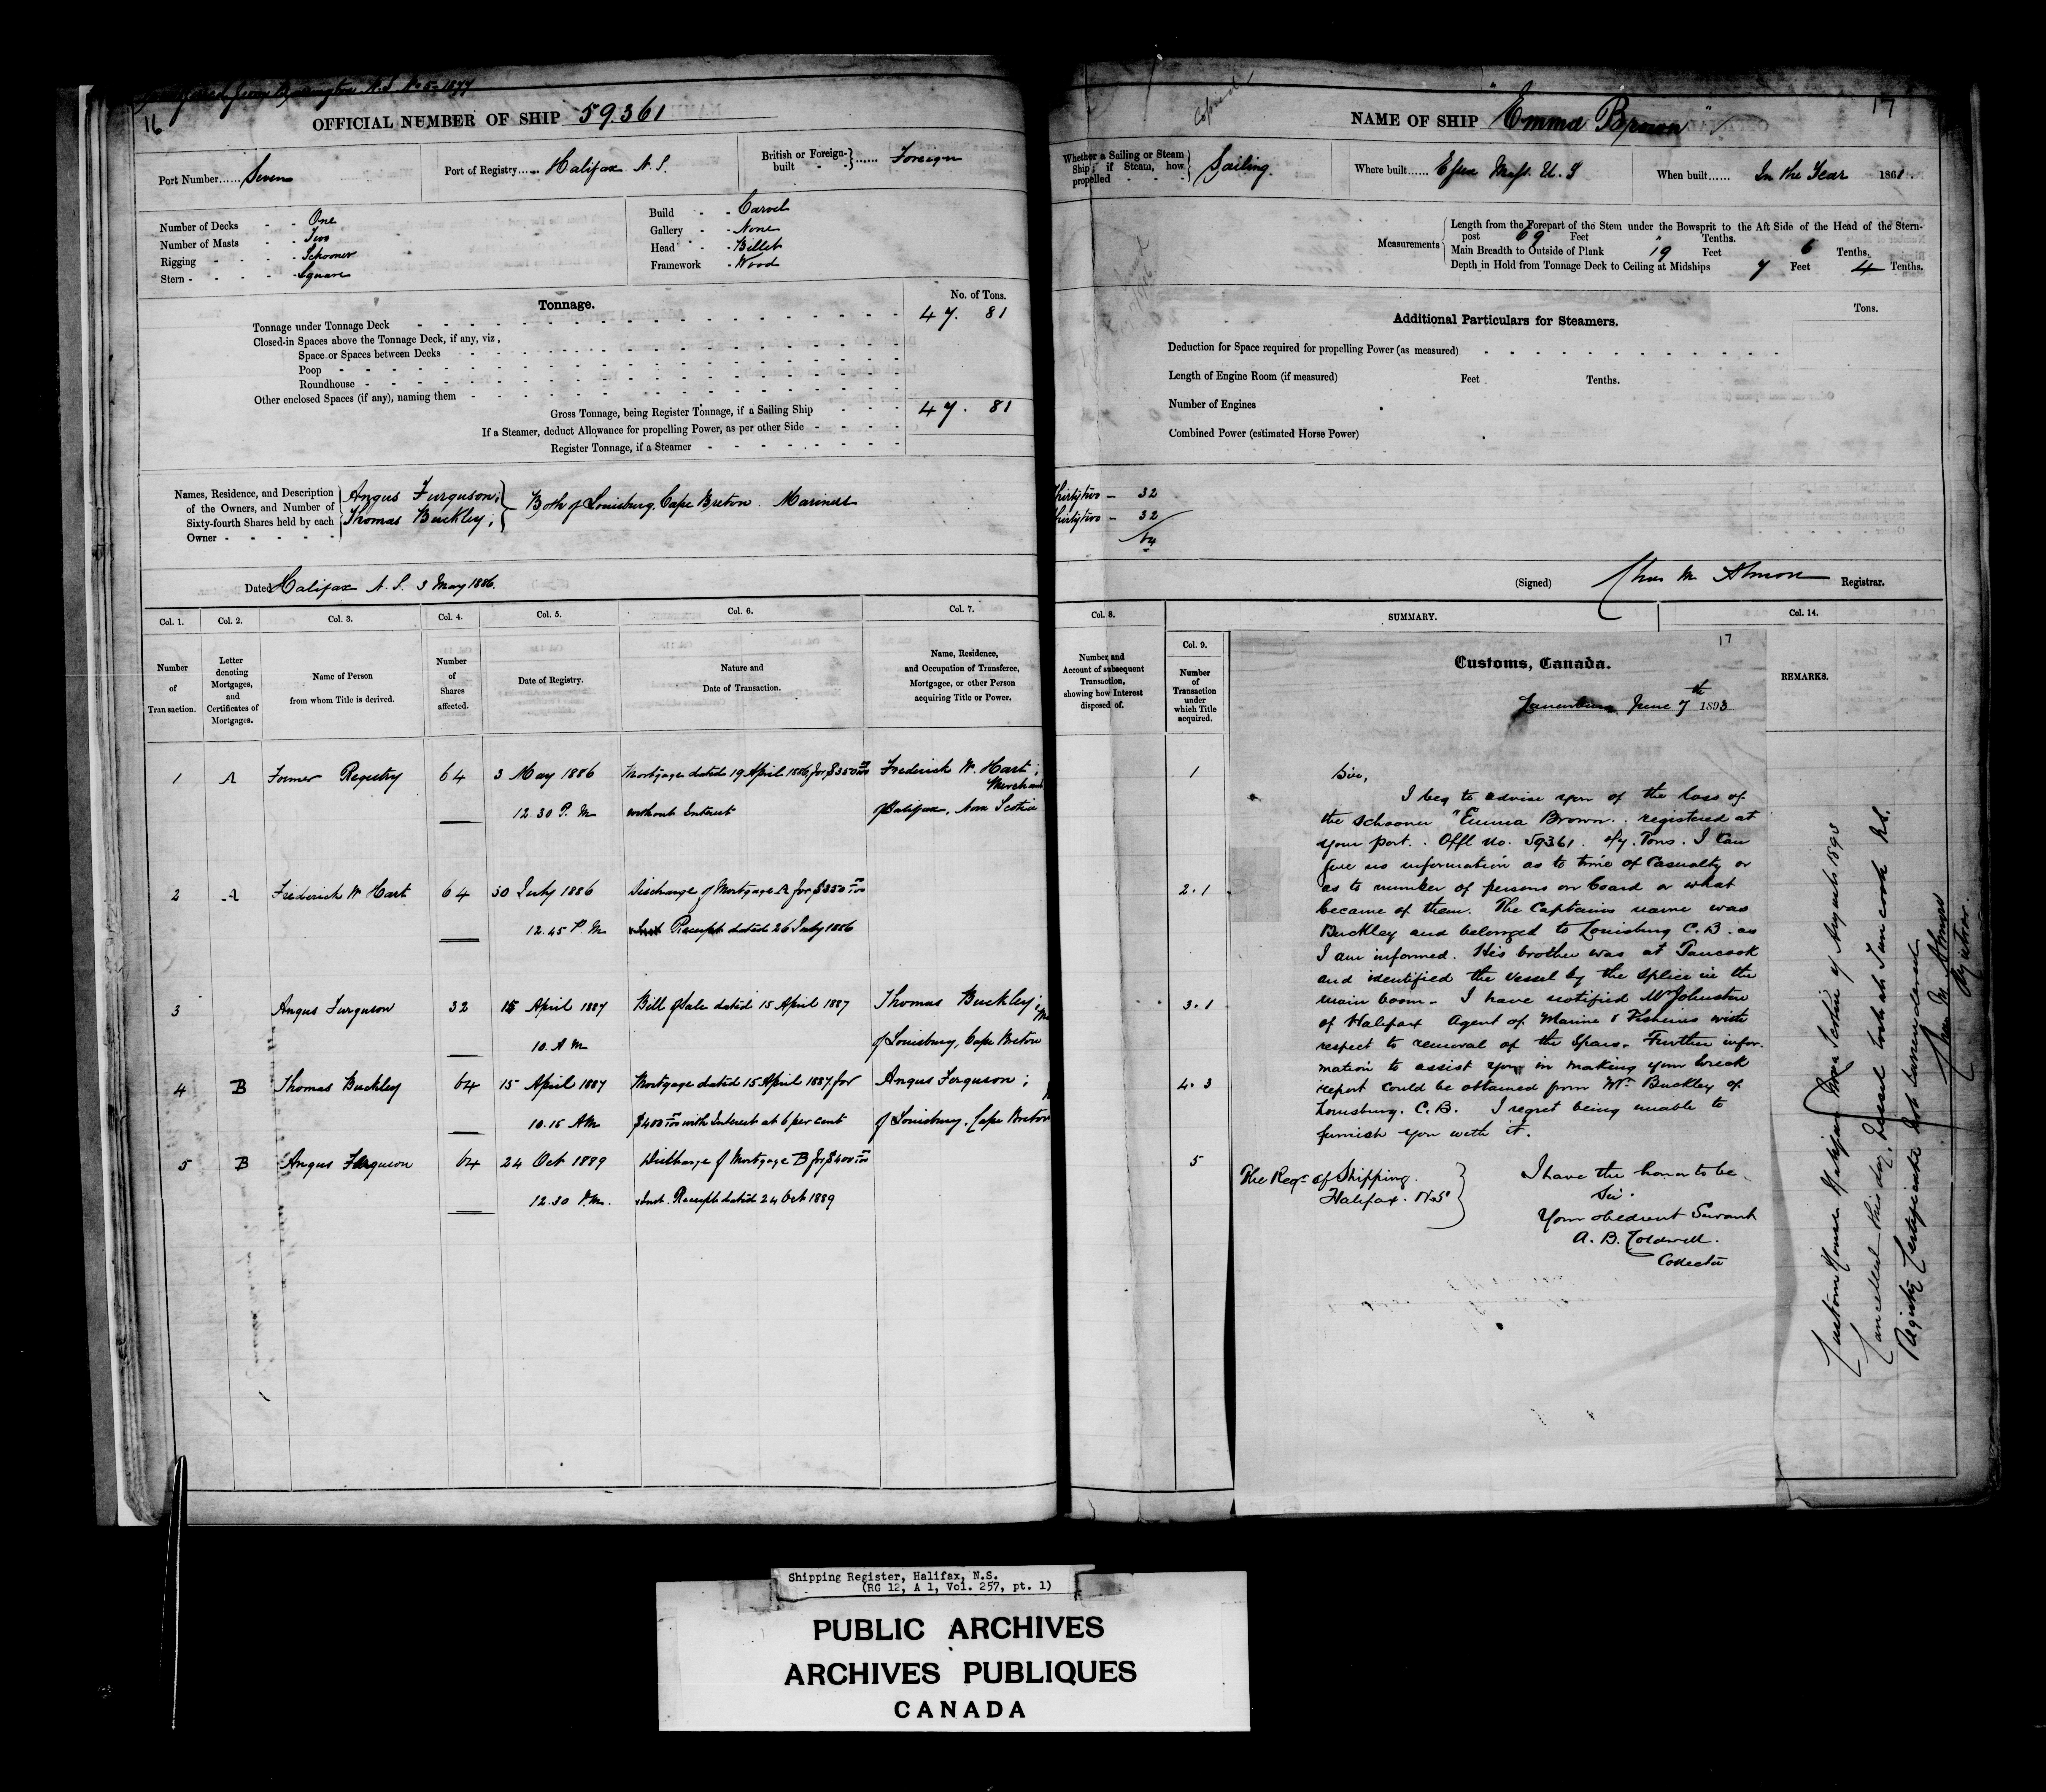 16
OFFICIAL NUMBER OF SHIP 59361
Port Number...... Seven
Port of Registry...... Halifax N. S.
British or Foreign-built - - }...... Foreign
Number of Decks - - One
Number of Masts - - Two
Rigging - - - - Schooner
Stern - - - - Square
Build - - Carvel
Gallery - - None
Head - - Billet
Framework - Wood
Tonnage.
No. of Tons.
Tonnage under Tonnage Deck 47. 81
Closed-in Spaces above the Tonnage Deck, if any, viz,
Space or Spaces between Decks
Poop
Roundhouse
Other enclosed Spaces (if any), naming them
Gross Tonnage, being Register Tonnage, if a Sailing Ship 47. 81
If a Steamer, deduct Allowance for propelling Power, as per other Side
Register Tonnage, if a Steamer
Names, Residence, and Description of the Owners, and Number of Sixty-fourth Shares held by each Owner
Angus Furguson;
Thomas Buckley;
Both of Louisburg, Cape Breton. Mariners
Dated Halifax N. S. 3 May 1886.
Col. 1. Col. 2. Col. 3. Col. 4. Col. 5. Col. 6. Col. 7.
Number of Transaction.
Letter denoting Mortgages, and Certificates of Mortgages.
Name of Person from whom Title is derived.
Number of Shares affected.
Date of Registry.
Nature and Date of Transaction.
Name, Residence, and Occupation of Transferee, Mortgagee, or other Person acquiring Title or Power.
1 A Former Registry 64 3 May 1886 Mortgage dated 19 April 1886, for $350 00/100 Frederick W. Hart; Merchant
12.30 P. M without Interest of Halifax, Nova Scotia
2 A Frederick W Hart 64 30 July 1886 Discharge of Mortgage A for $350 00/100
12.45 P. M Receipt dated 26 July 1886
3 Angus Furguson 32 15 April 1887 Bill of Sale dated 15 April 1887 Thomas Buckley;
10. A M of Louisburg, Cape Breton
4 B Thomas Buckley 64 15 April 1887 Mortgage dated 15 April 1887, for Angus Ferguson;
10.15 AM $400 00/100 with Interest at 6 per cent of Louisburg, Cape Breton
5 B Angus Ferguson 64 24 Oct 1889 Discharge of Mortgage B for $400 00/100
12.30 P.M. Receipt dated 24 Oct 1889
17
NAME OF SHIP "Emma Brown"
Whether a Sailing or Steam Ship; if Steam, how propelled } Sailing.
Where built...... Essex Mass. U. S
When built...... In the Year 1861.
Measurements
Length from the Forepart of the Stem under the Bowsprit to the Aft Side of the Head of the Stern-
post 69 Feet " Tenths.
Main Breadth to Outside of Plank 19 Feet 6 Tenths.
Depth in Hold from Tonnage Deck to Ceiling at Midships 7 Feet 4 Tenths.
Additional Particulars for Steamers.
Tons.
Deduction for Space required for propelling Power (as measured)
Length of Engine Room (if measured) Feet Tenths.
Number of Engines
Combined Power (estimated Horse Power)
Thirtytwo - 32
Thirtytwo - 32
64
(Signed) Chas M Almon Registrar.
Col. 8. SUMMARY. Col. 14.
Number and Account of subsequent Transaction, showing how Interest disposed of.
Col. 9.
Number of Transaction under which Title acquired.
REMARKS.
1
2.1
3.1
4.3
5
17
Customs, Canada.
Lunenburg June 7th 1893
Sir,
I beg to advise you of the loss of
the schooner "Emma Brown.. registered at
your port.. Offl No. 59361. 47. Tons. I can
give no information as to time of Casualty or
as to number of persons on board or what
became of them. The Captains name was
Buckley and belonged to Louisburg C.B. as
I am informed. His brother was at Tancook
and identified the vessel by the splice in the
main boom. I have notified Mr Johnston
of Halifax Agent of Marine & Fisheries with
respect to removal of the Spars. Further infor-
mation to assist you in making your wreck
report could be obtained from Mr. Buckley of
Louisburg. C.B. I regret being unable to
furnish you with it.
The Regr of Shipping.
Halifax. N.S.
I have the honor to be
Sir.
Your obedient Servant
A. B. Coldwell.
Collector
Custom House Halifax Nova Scotia 4 August 1893
Cancelled this day, Vessel lost at Tancook N.S.
Registry Certificate not surrendered
Chas M Almon
Registrar.
Shipping Register, Halifax, N.S.
(RG 12, A 1, Vol. 257, pt. 1)
PUBLIC ARCHIVES
ARCHIVES PUBLIQUES
CANADA